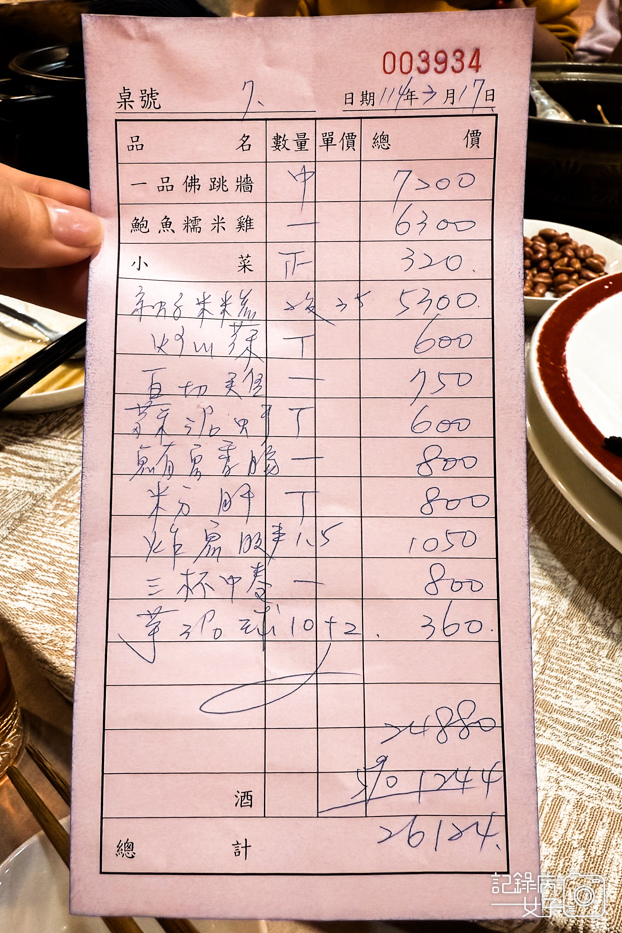 003934
桌號 7. 日期 114年3月17日
品名 數量 單價 總價
一品佛跳牆 中 7200
鮑魚糯米雞 一 6300
小菜 正 320.
米糕 5300.
炒山蘇 丁 600
白切雞 一 750
丁 600
一 800
米分 丁 800
1.5 1050
三杯中卷 一 800
芋泥球 10+2. 360.
24880
酒 5% 1244
總計 26124.
記錄
女